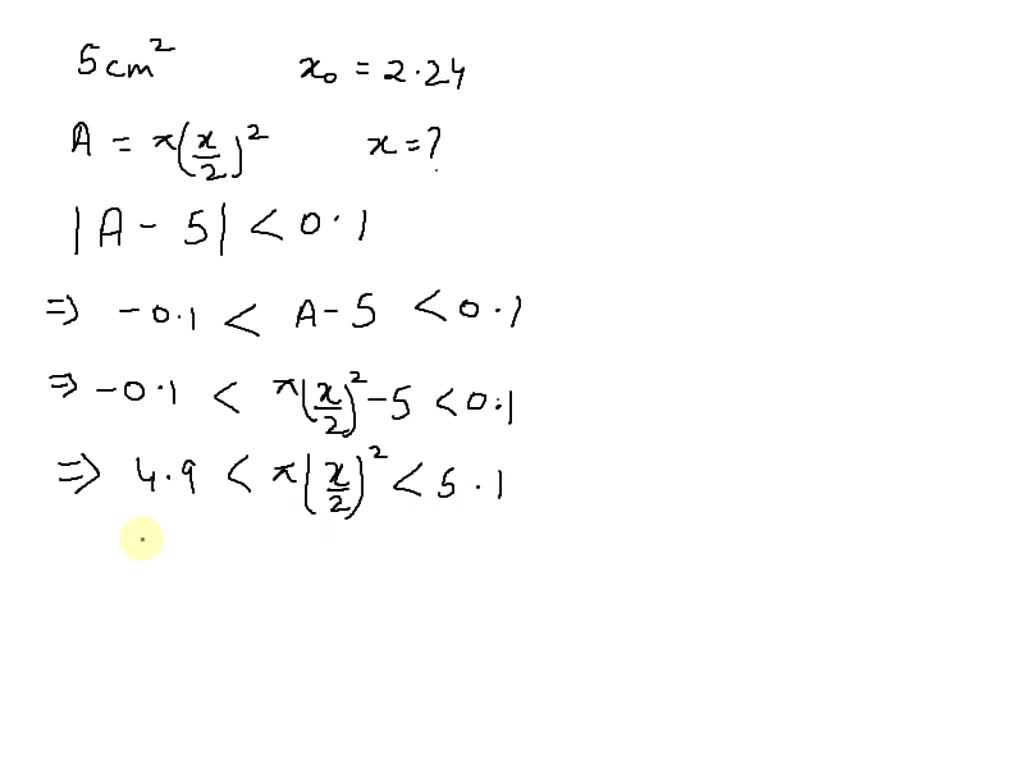 5cm² x₀ = 2.24
A = π(x/2)² x = ?
|A - 5| < 0.1
⇒ -0.1 < A - 5 < 0.1
⇒ -0.1 < π(x/2)² - 5 < 0.1
⇒ 4.9 < π(x/2)² < 5.1